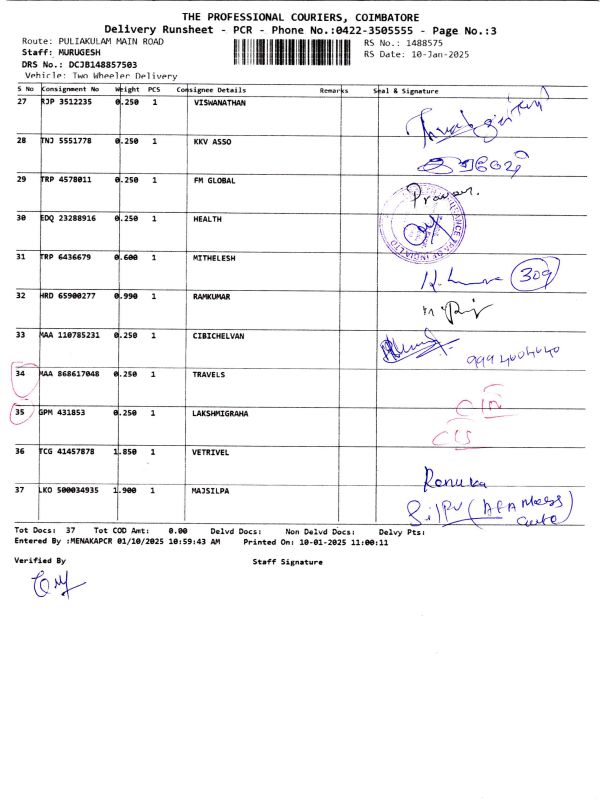 THE PROFESSIONAL COURIERS, COIMBATORE
Delivery Runsheet - PCR - Phone No.:0422-3505555 - Page No.:3
Route: PULIAKULAM MAIN ROAD RS No.: 1488575
Staff: MURUGESH RS Date: 10-Jan-2025
DRS No.: DCJB148857503
Vehicle: Two Wheeler Delivery
S No Consignment No Weight PCS Consignee Details Remarks Seal & Signature
27 RJP 3512235 0.250 1 VISWANATHAN
28 TNJ 5551778 0.250 1 KKV ASSO
29 TRP 4578011 0.250 1 FM GLOBAL
Pravean.
30 EDQ 23288916 0.250 1 HEALTH
31 TRP 6436679 0.600 1 MITHELESH
309
32 HRD 65900277 0.990 1 RAMKUMAR
33 MAA 110785231 0.250 1 CIBICHELVAN
9994004040
34 MAA 868617048 0.250 1 TRAVELS
35 GPM 431853 0.250 1 LAKSHMIGRAHA
36 TCG 41457878 1.850 1 VETRIVEL
Renuka
37 LKO 500034935 1.900 1 MAJSILPA
Tot Docs: 37 Tot COD Amt: 0.00 Delvd Docs: Non Delvd Docs: Delvy Pts:
Entered By :MENAKAPCR 01/10/2025 10:59:43 AM Printed On: 10-01-2025 11:00:11
Verified By Staff Signature